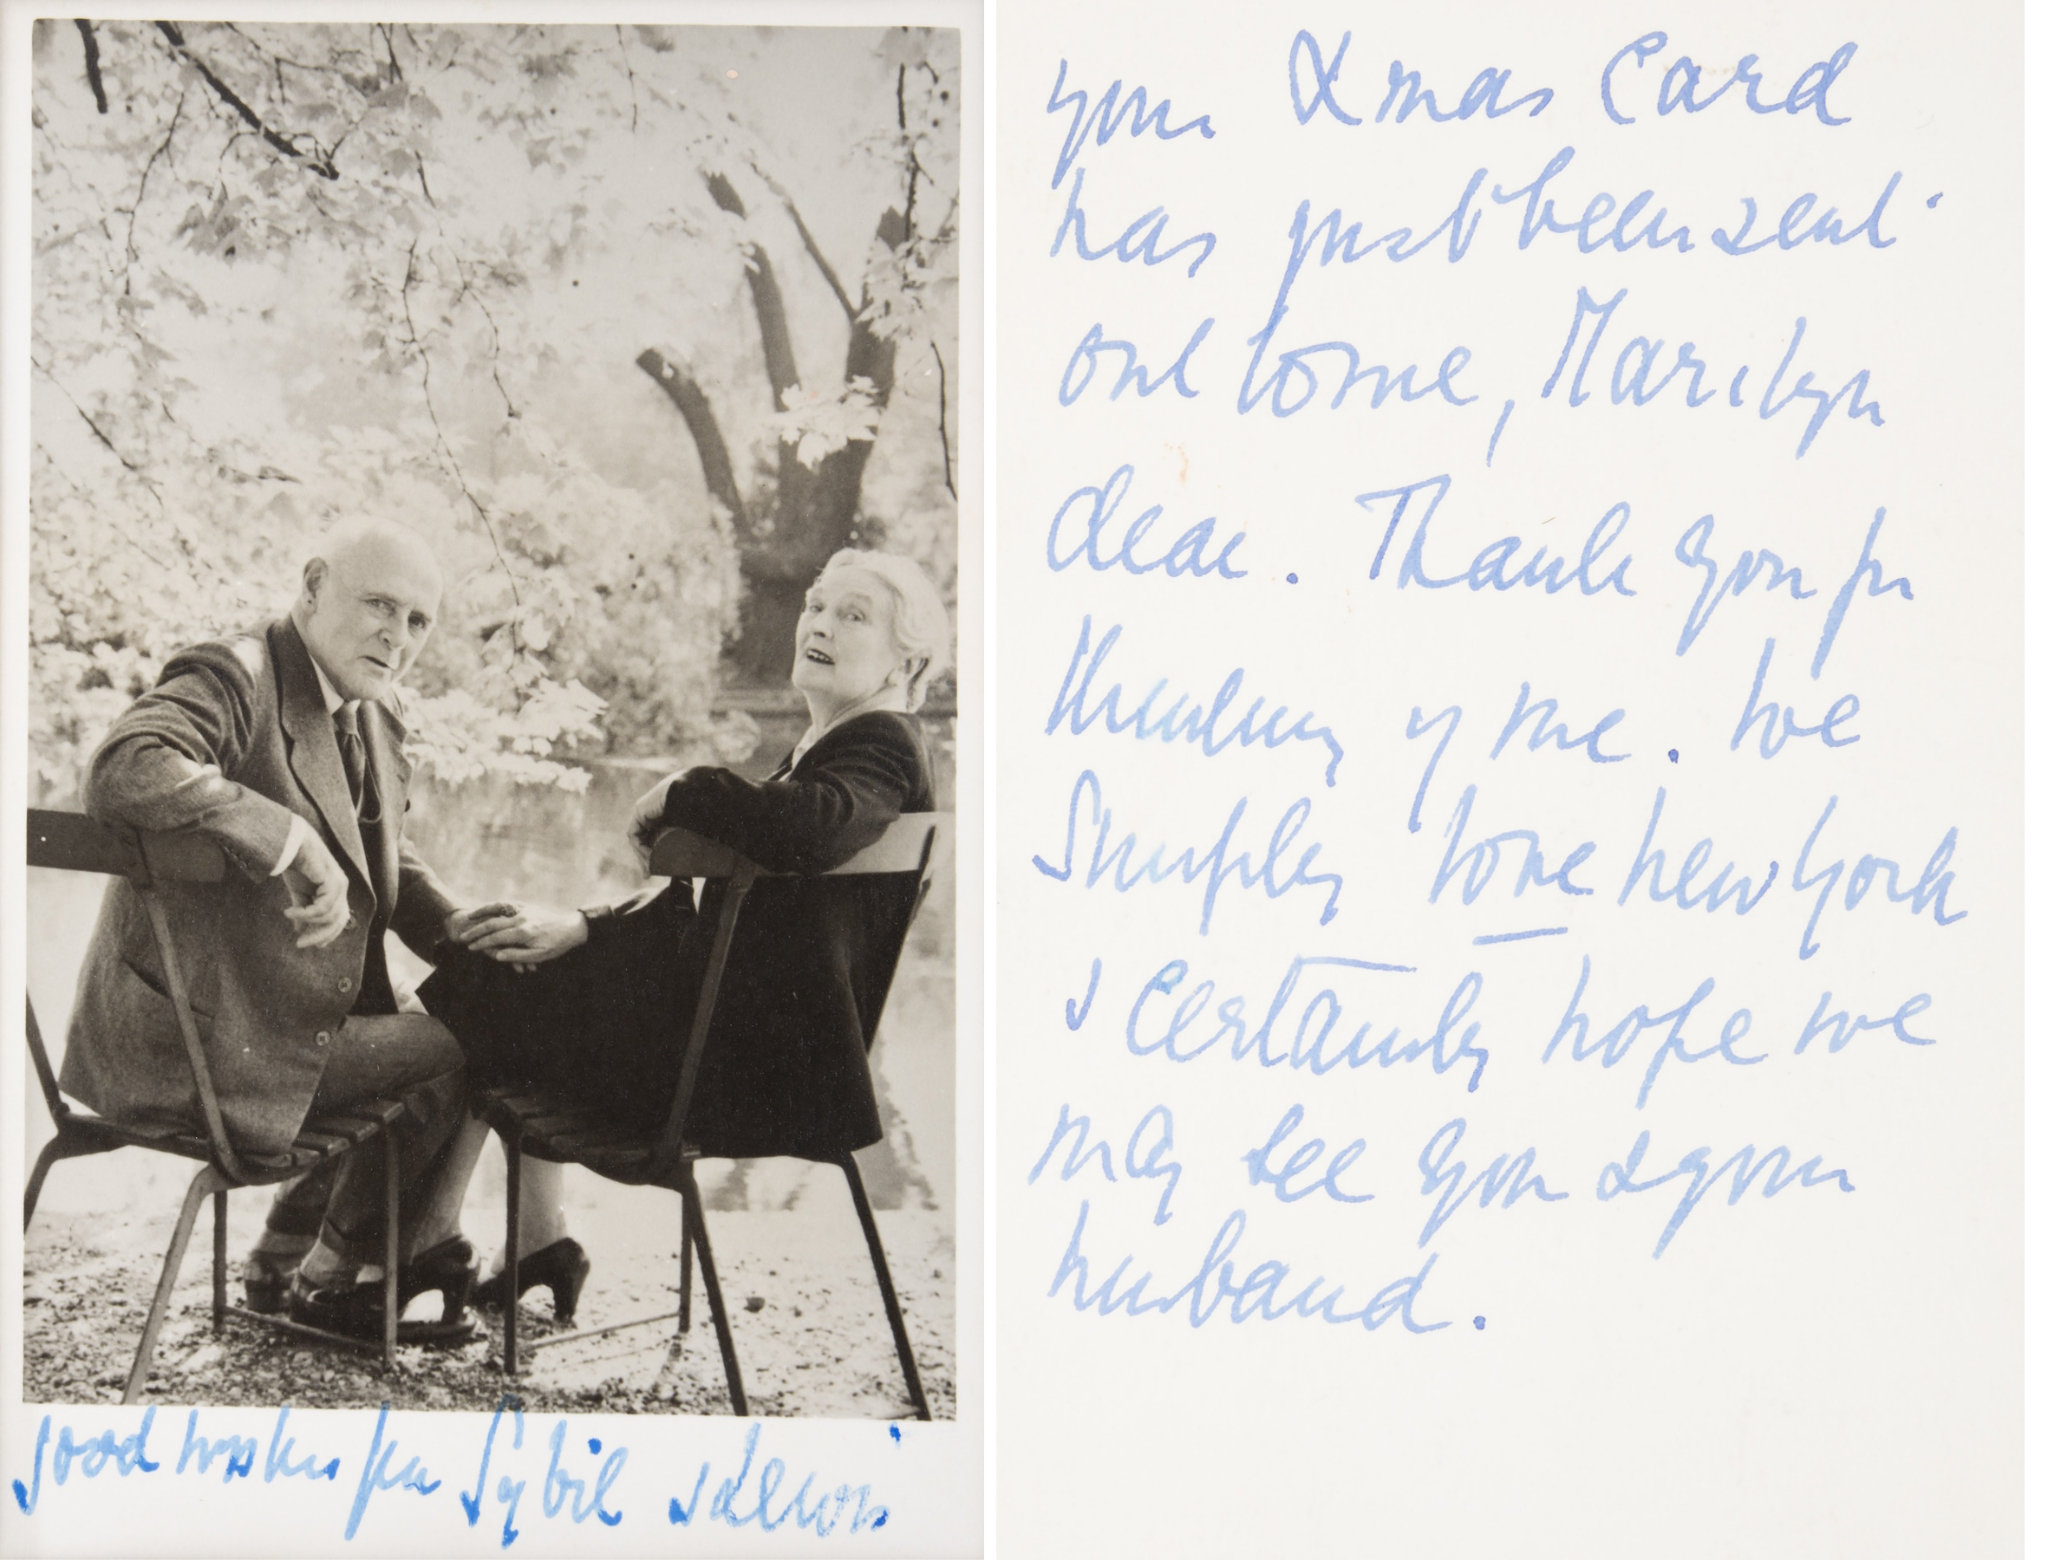 Good wishes from Sybil & Lewis
your Xmas Card
has just been sent
out to me, Marilyn
dear. Thank you for
thinking of me. We
simply love New York
& certainly hope we
may see you & your
husband.